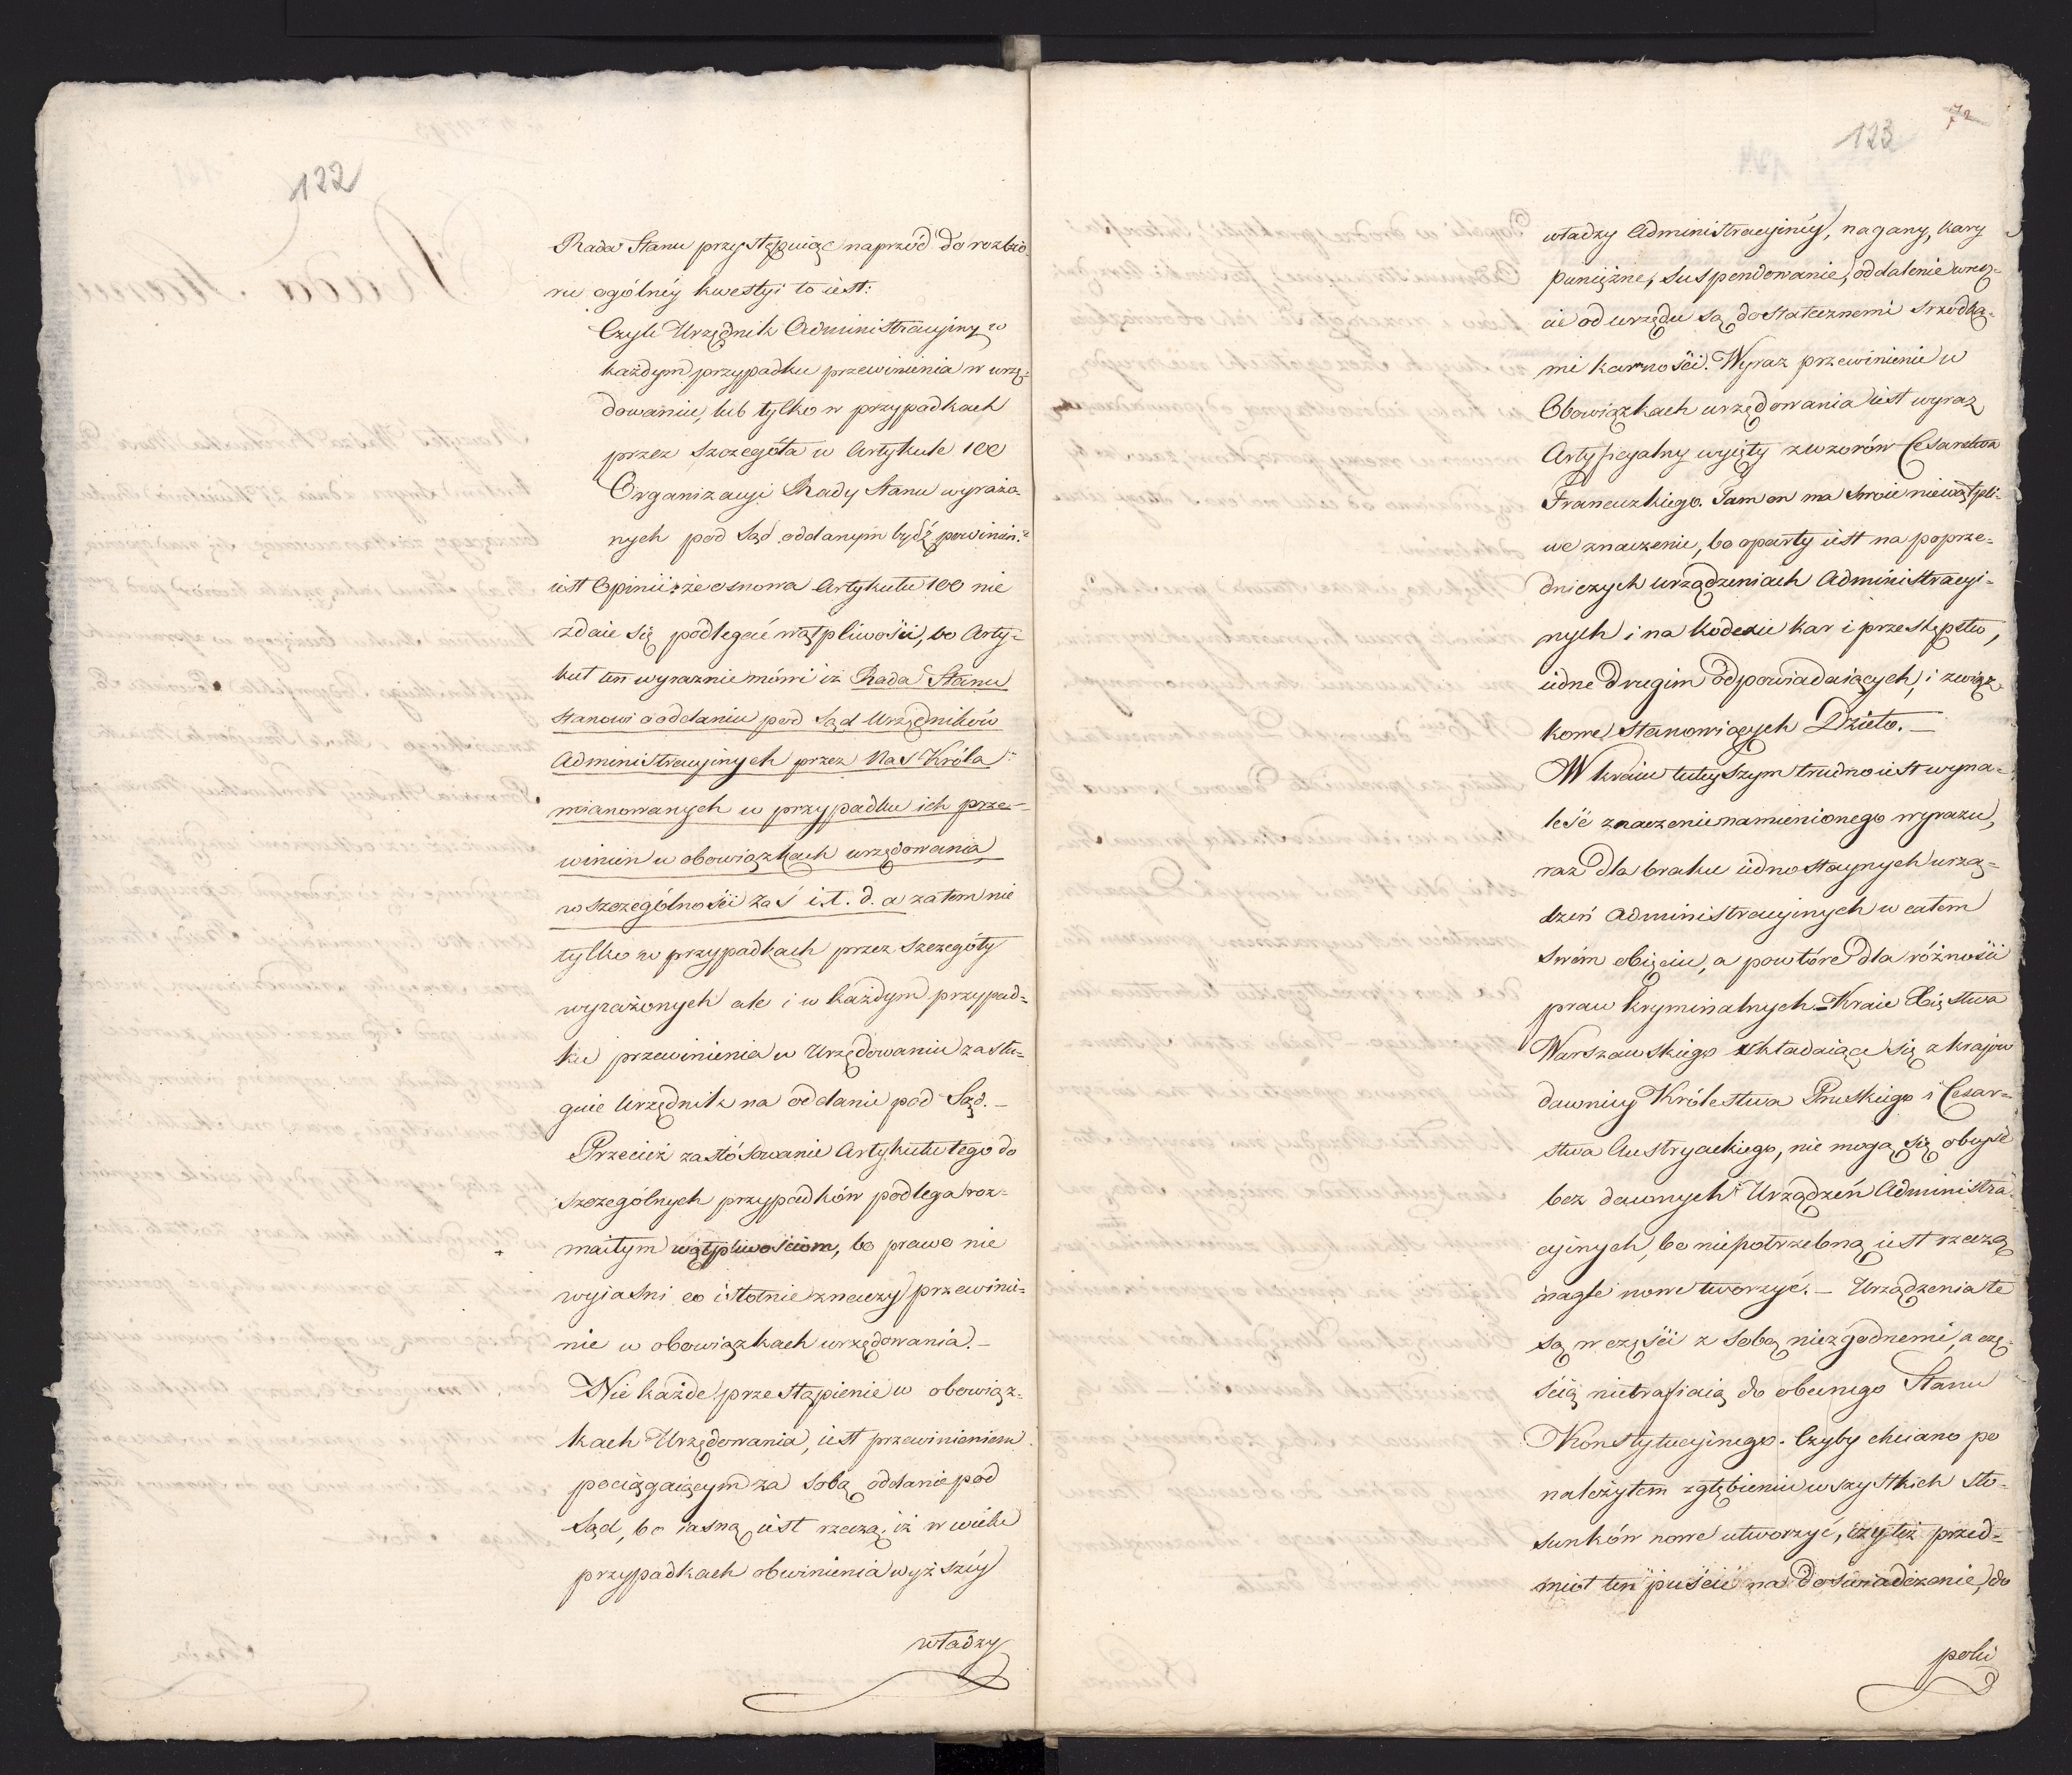 122
Rada Stanu przystępuiąc naprzód do rozbio-
ru ogólnéy kwestyi to iest:
Czyli Urzędnik Administracyiny w
każdym przypadku przewinienia w urzę-
dowaniu, lub tylko w przypadkach
przez szczegóła w Artykule 100
Organizacyi Rady Stanu wyrażo-
nych pod Sąd oddanym bydź powinien?
iest Opinii: że osnowa Artykułu 100 nie
zdaie się podlegać wątpliwości, bo Arty-
kuł ten wyraznie mówi iż Rada Stanu
stanowi o oddaniu pod Sąd Urzędników
Administracyinych przez Nas Króla
mianowanych w przypadku ich prze-
winień w obowiązkach urzędowania
w szczególności zaś i.t.d. a zatem nie
tylko w przypadkach przez szczegóły
wyrażonych ale i w każdym przypad-
ku przewinienia w Urzędowaniu zasłu-
guie Urzędnik na oddanie pod Sąd.-
Przecież zastósowanie Artykułu tego do
szczególnych przypadków podlega roz-
maitym wątpliwościom, bo prawo nie
wyiaśni co istotnie znaczy przewinie-
nie w obowiązkach urzędowania.-
Nie każde przestąpienie w obowiąz-
kach Urzędowania, iest przewinieniem
pociągaiącym za sobą oddanie pod
Sąd, bo iasną iest rzeczą, iż w wielu
przypadkach obwinienia wyższéy
władzy
123
72
władzy Administracyinéy, nagany, kary
pieniężne, suspendowanie, oddalenie wresz-
cie od urzędu są dostatecznemi srzodka-
mi karności. Wyraz przewinienie w
Obowiązkach urzędowania iest wyraz
Artyficyalny wyięty z wzorów Cesarstwa
Francuzkiego. Tam on ma swoie niewątpli-
we znaczenie, bo oparty iest na poprze-
dniczych urządzeniach Administracyi-
nych i na kodexie kar i przestępstw,
iedne drugim odpowiadaiących, i związ-
kowe stanowiących Dzieło.-
W kraiu tuteyszym trudno iest wyna-
leść znaczenie namienionego wyrazu,
raz dla braku iednostaynych urzą-
dzeń Administracyinych w całem
swém obięciu, a powtóre dla różności
praw kryminalnych.- Kraie Xięstwa
Warszawskiego składaiące się z kraiów
dawniey Królestwa Pruskiego i Cesar-
stwa Austryackiego, nie mogą się obeyść
bez dawnych Urządzeń Administra-
cyinych, bo niepotrzebną iest rzeczą
nagle nowe tworzyć.- Urządzenia te
są w części z sobą niezgodnemi, a czę-
ścią nietrafiaią do obecnego Stanu
Konstytucyinego. Czyby chciano po
należytem zgłębieniu wszystkich sto-
sunków nowe utworzyć, czy też przed-
miot ten puścić na doświadczenie, do
poki